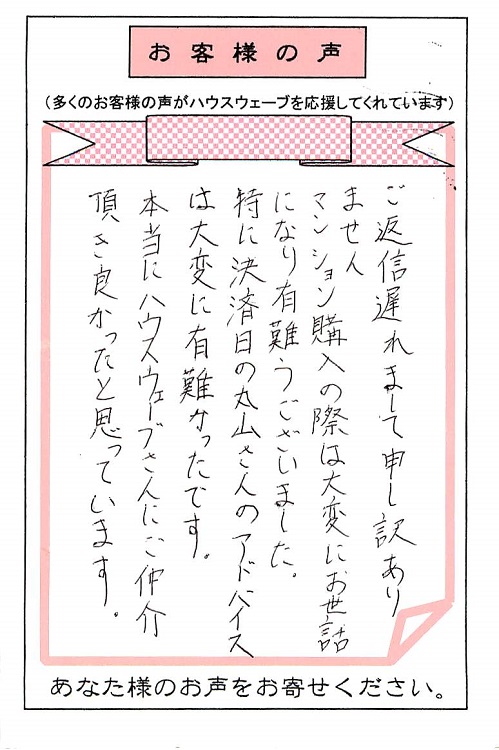 お客様の声
（多くのお客様の声がハウスウェーブを応援してくれています）
ご返信遅れまして申し訳あり
ません
マンション購入の際は大変にお世話
になり有難うございました。
特に決済日の丸山さんのアドバイス
は大変に有難かったです。
本当にハウスウェーブさんにご仲介
頂き良かったと思っています。
あなた様のお声をお寄せください。